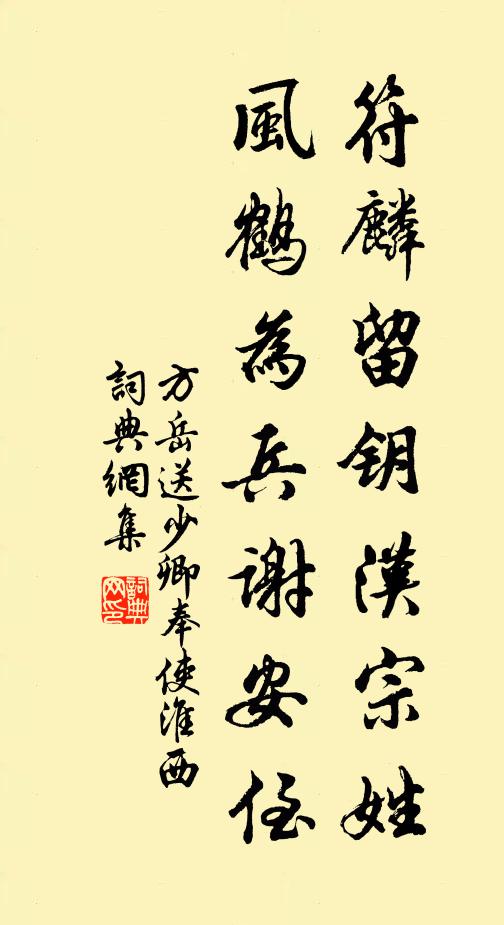 符麟留钥漢宗姓
風鶴為兵謝安侄
方岳送少卿奉使淮西
詞典網集
詞典網印